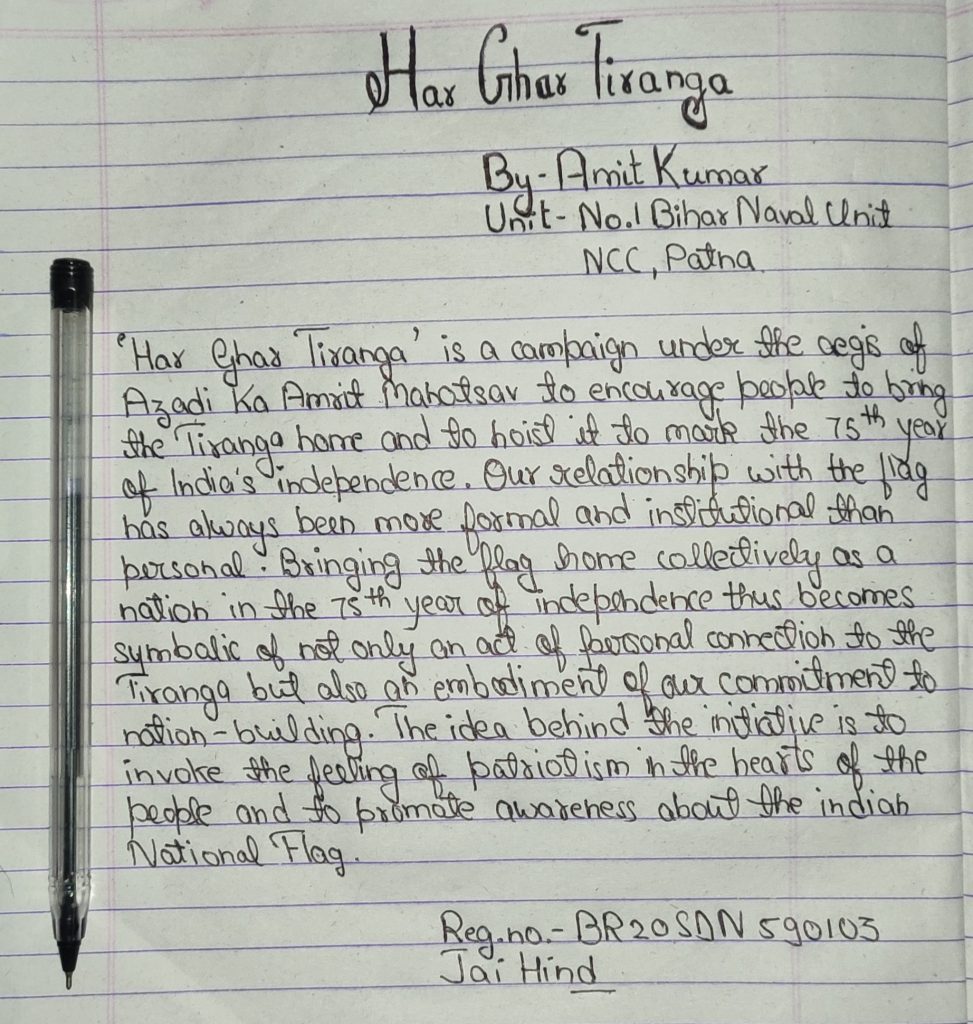 Har Ghar Tiranga
By- Amit Kumar
Unit- No.1 Bihar Naval Unit
NCC, Patna
'Har Ghar Tiranga' is a campaign under the aegis of
Azadi Ka Amrit Mahotsav to encourage people to bring
the Tiranga home and to hoist it to mark the 75th year
of India's independence. Our relationship with the flag
has always been more formal and institutional than
personal. Bringing the flag home collectively as a
nation in the 75th year of independence thus becomes
symbolic of not only an act of personal connection to the
Tiranga but also an embodiment of our commitment to
nation-building. The idea behind the initiative is to
invoke the feeling of patriotism in the hearts of the
people and to promote awareness about the indian
National Flag.
Reg.no.- BR20SDN590103
Jai Hind